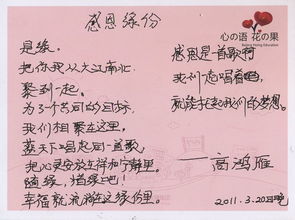 感恩缘份
心の语 花の果
是缘。
把你我从大江南北
聚到一起。
为了个共同的目标
我们相聚在这里。
蓝天下唱起同一首歌
把心灵安放在祥和宁静里。
随缘，惜缘吧！
幸福就流淌在这缘份里。
感恩是首歌啊
我们一起唱着吧，
就能托起我们的梦想。
——高鸿雁
2011.3.20日晚